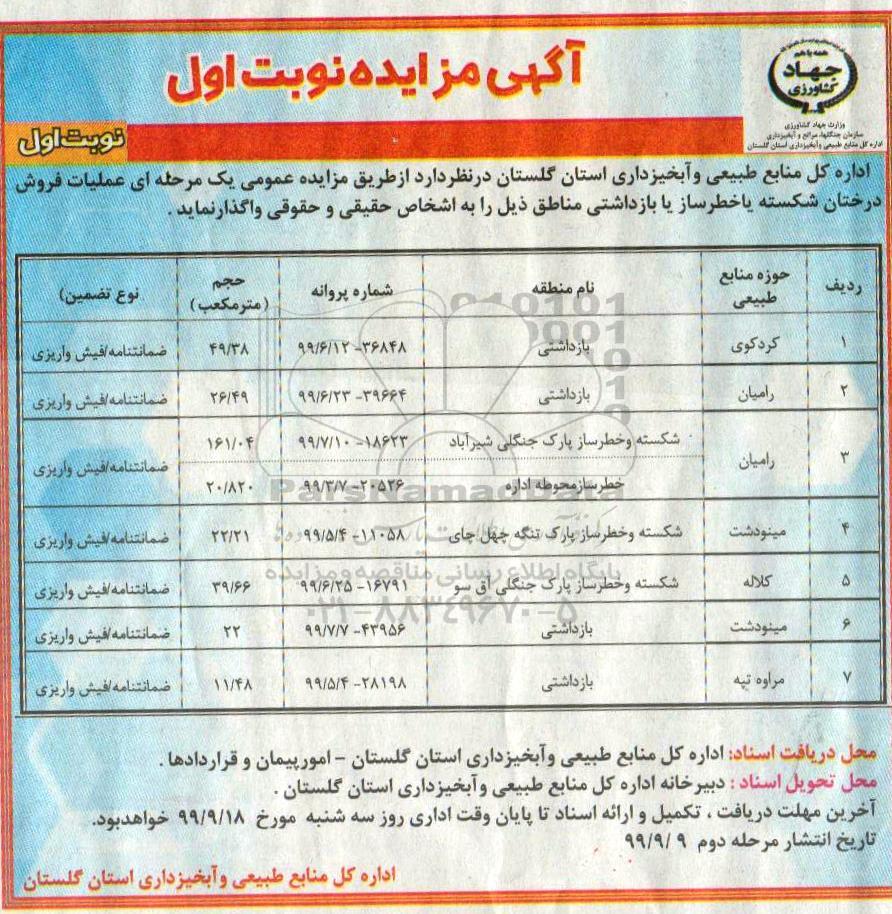 همه با هم
جهاد
کشاورزی
وزارت جهاد کشاورزی
سازمان جنگلها، مراتع و آبخیزداری
اداره کل منابع طبیعی وآبخیزداری استان گلستان
آگهی مزایده نوبت اول
نوبت اول
اداره کل منابع طبیعی وآبخیزداری استان گلستان درنظردارد ازطریق مزایده عمومی یک مرحله ای عملیات فروش
درختان شکسته یاخطرساز یا بازداشتی مناطق ذیل را به اشخاص حقیقی و حقوقی واگذارنماید .
ردیف حوزه منابع طبیعی نام منطقه شماره پروانه حجم (مترمکعب) نوع تضمین)
۱ کردکوی بازداشتی ۳۶۸۴۸- ۹۹/۶/۱۲ ۴۹/۳۸ ضمانتنامه/فیش واریزی
۲ رامیان بازداشتی ۳۹۶۶۴- ۹۹/۶/۲۳ ۲۶/۴۹ ضمانتنامه/فیش واریزی
۳ رامیان شکسته وخطرساز پارک جنگلی شیرآباد ۱۸۶۲۳- ۹۹/۷/۱۰ ۱۶۱/۰۴ ضمانتنامه/فیش واریزی
خطرسازمحوطه اداره ۲۰۵۲۶- ۹۹/۳/۷ ۲۰/۸۲۰
۴ مینودشت شکسته وخطرساز پارک تنگه چهل چای ۱۱۰۵۸- ۹۹/۵/۴ ۲۲/۲۱ ضمانتنامه/فیش واریزی
۵ کلاله شکسته وخطرساز پارک جنگلی آق سو ۱۶۷۹۱- ۹۹/۶/۲۵ ۳۹/۶۶ ضمانتنامه/فیش واریزی
۶ مینودشت بازداشتی ۴۳۹۵۶- ۹۹/۷/۷ ۲۲ ضمانتنامه/فیش واریزی
۷ مراوه تپه بازداشتی ۲۸۱۹۸- ۹۹/۵/۴ ۱۱/۴۸ ضمانتنامه/فیش واریزی
ParsNamadData
پایگاه اطلاع رسانی مناقصه و مزایده
۰۲۱-۸۸۳۴۹۶۷۰-۵
محل دریافت اسناد: اداره کل منابع طبیعی وآبخیزداری استان گلستان – امورپیمان و قراردادها .
محل تحویل اسناد : دبیرخانه اداره کل منابع طبیعی وآبخیزداری استان گلستان .
آخرین مهلت دریافت ، تکمیل و ارائه اسناد تا پایان وقت اداری روز سه شنبه مورخ ۹۹/۹/۱۸ خواهدبود.
تاریخ انتشار مرحله دوم ۹۹/۹/۹
اداره کل منابع طبیعی وآبخیزداری استان گلستان